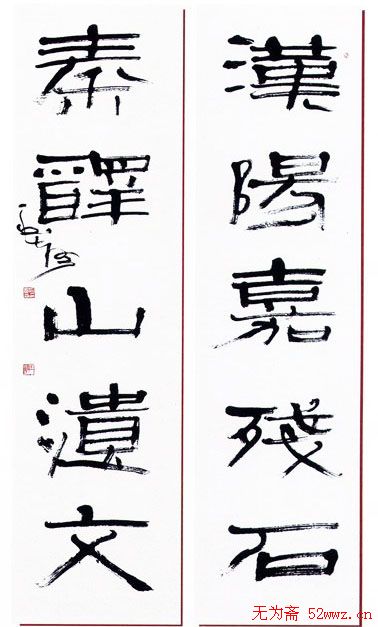 漢陽嘉殘石
秦嶧山遺文
无为斋 52wwz.cn